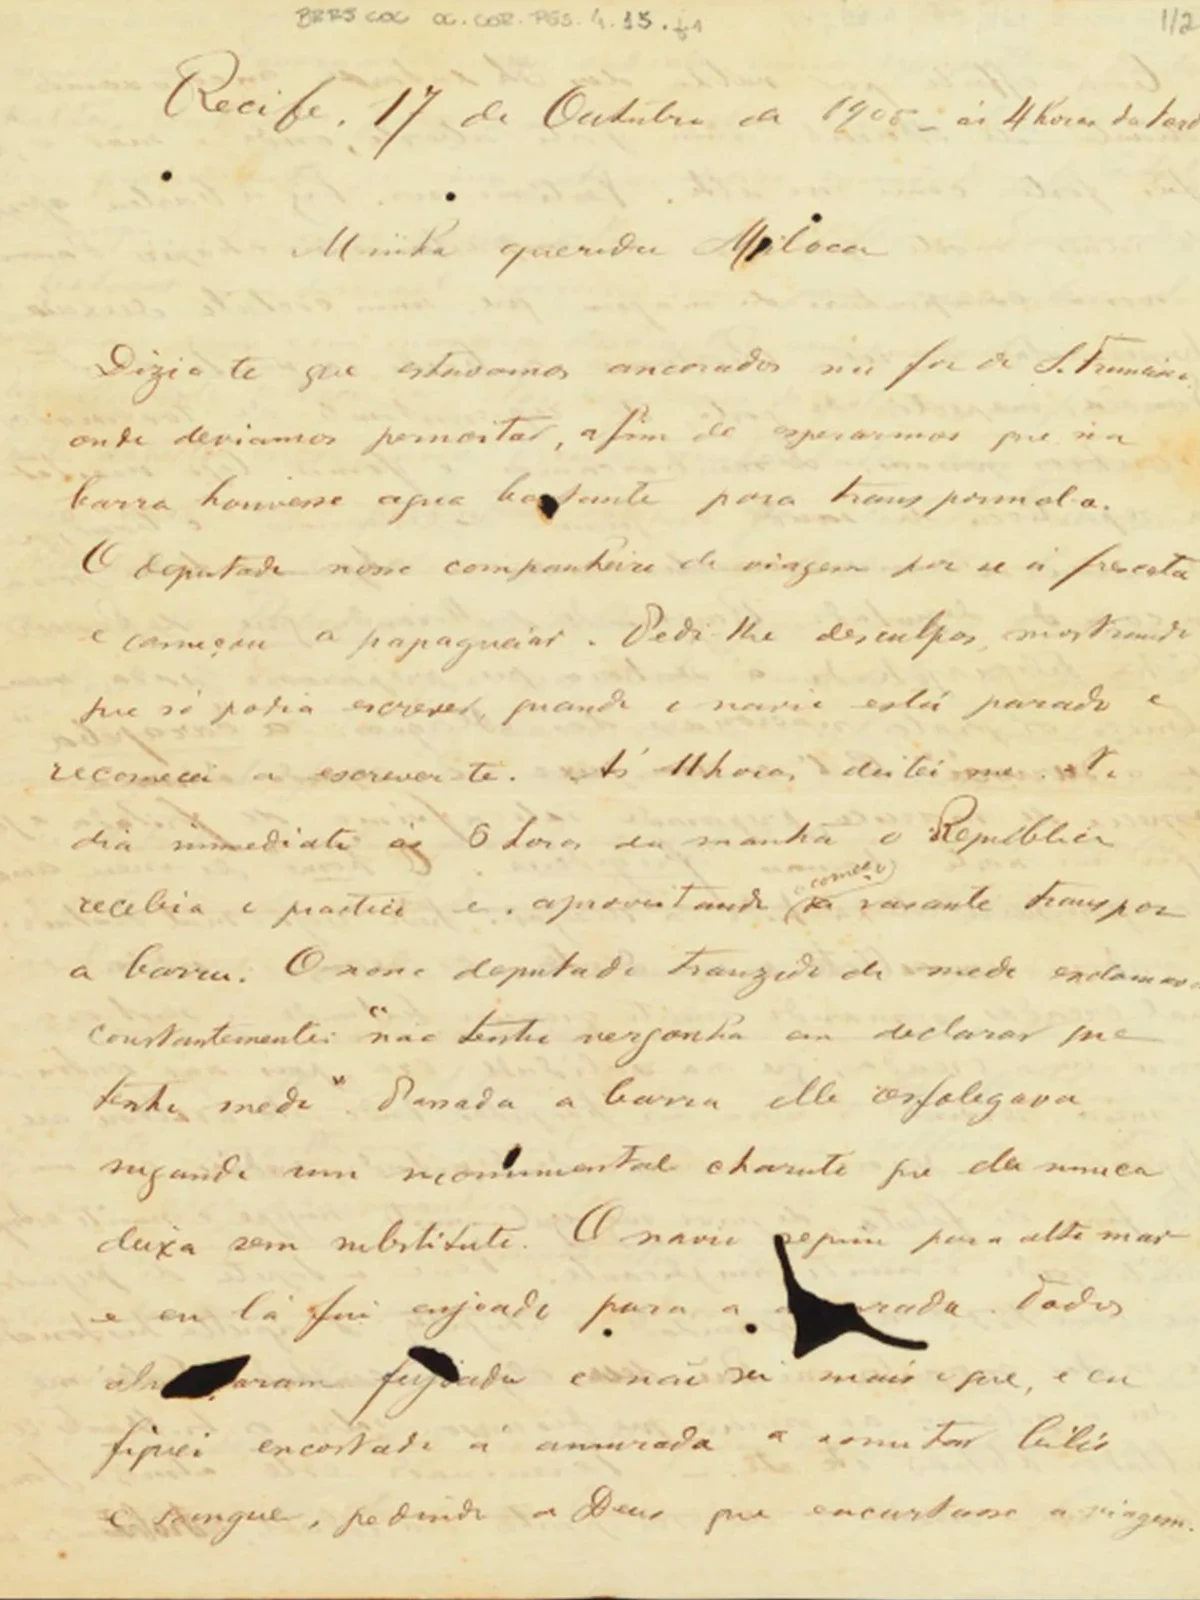 BRRJ COC OC. COR. PES. 4. 15. f1
1/2
Recife, 17 de Outubro de 1905 - ás 4 horas da tard
Minha querida Miloca
Dizia te que estavamos ancorados na foz de S. Francisco,
onde deviamos pernoitar, afim de esperarmos que na
barra houvesse agua bastante para transpormol-a.
O deputado nosso companheiro de viagem poz se á frescata
e começou a papaguear. Pedi-lhe desculpas, mostrando
que só podia escrever, quando o navio está parado e
recomecei a escrever-te. Ás 11 horas deitei me. No
dia immediato ás 6 horas da manhã o Republica
recebia o pratico e, aproveitando o começo da vasante transpoz
a barra. O nosso deputado tranzido de medo exclamava
constantemente: "não tenho vergonha em declarar que
tenho medo". Passada a barra elle resfolegava
sugando um monumental charuto que elle nunca
deixa sem substituto. O navio seguiu para alto mar
e eu lá fui enjoado para a amurada. Todos
almoçaram feijoada e não sei mais o que, e eu
fiquei encostado á amurada a vomitar bilis
e sangue, pedindo a Deus que encurtasse a viagem.